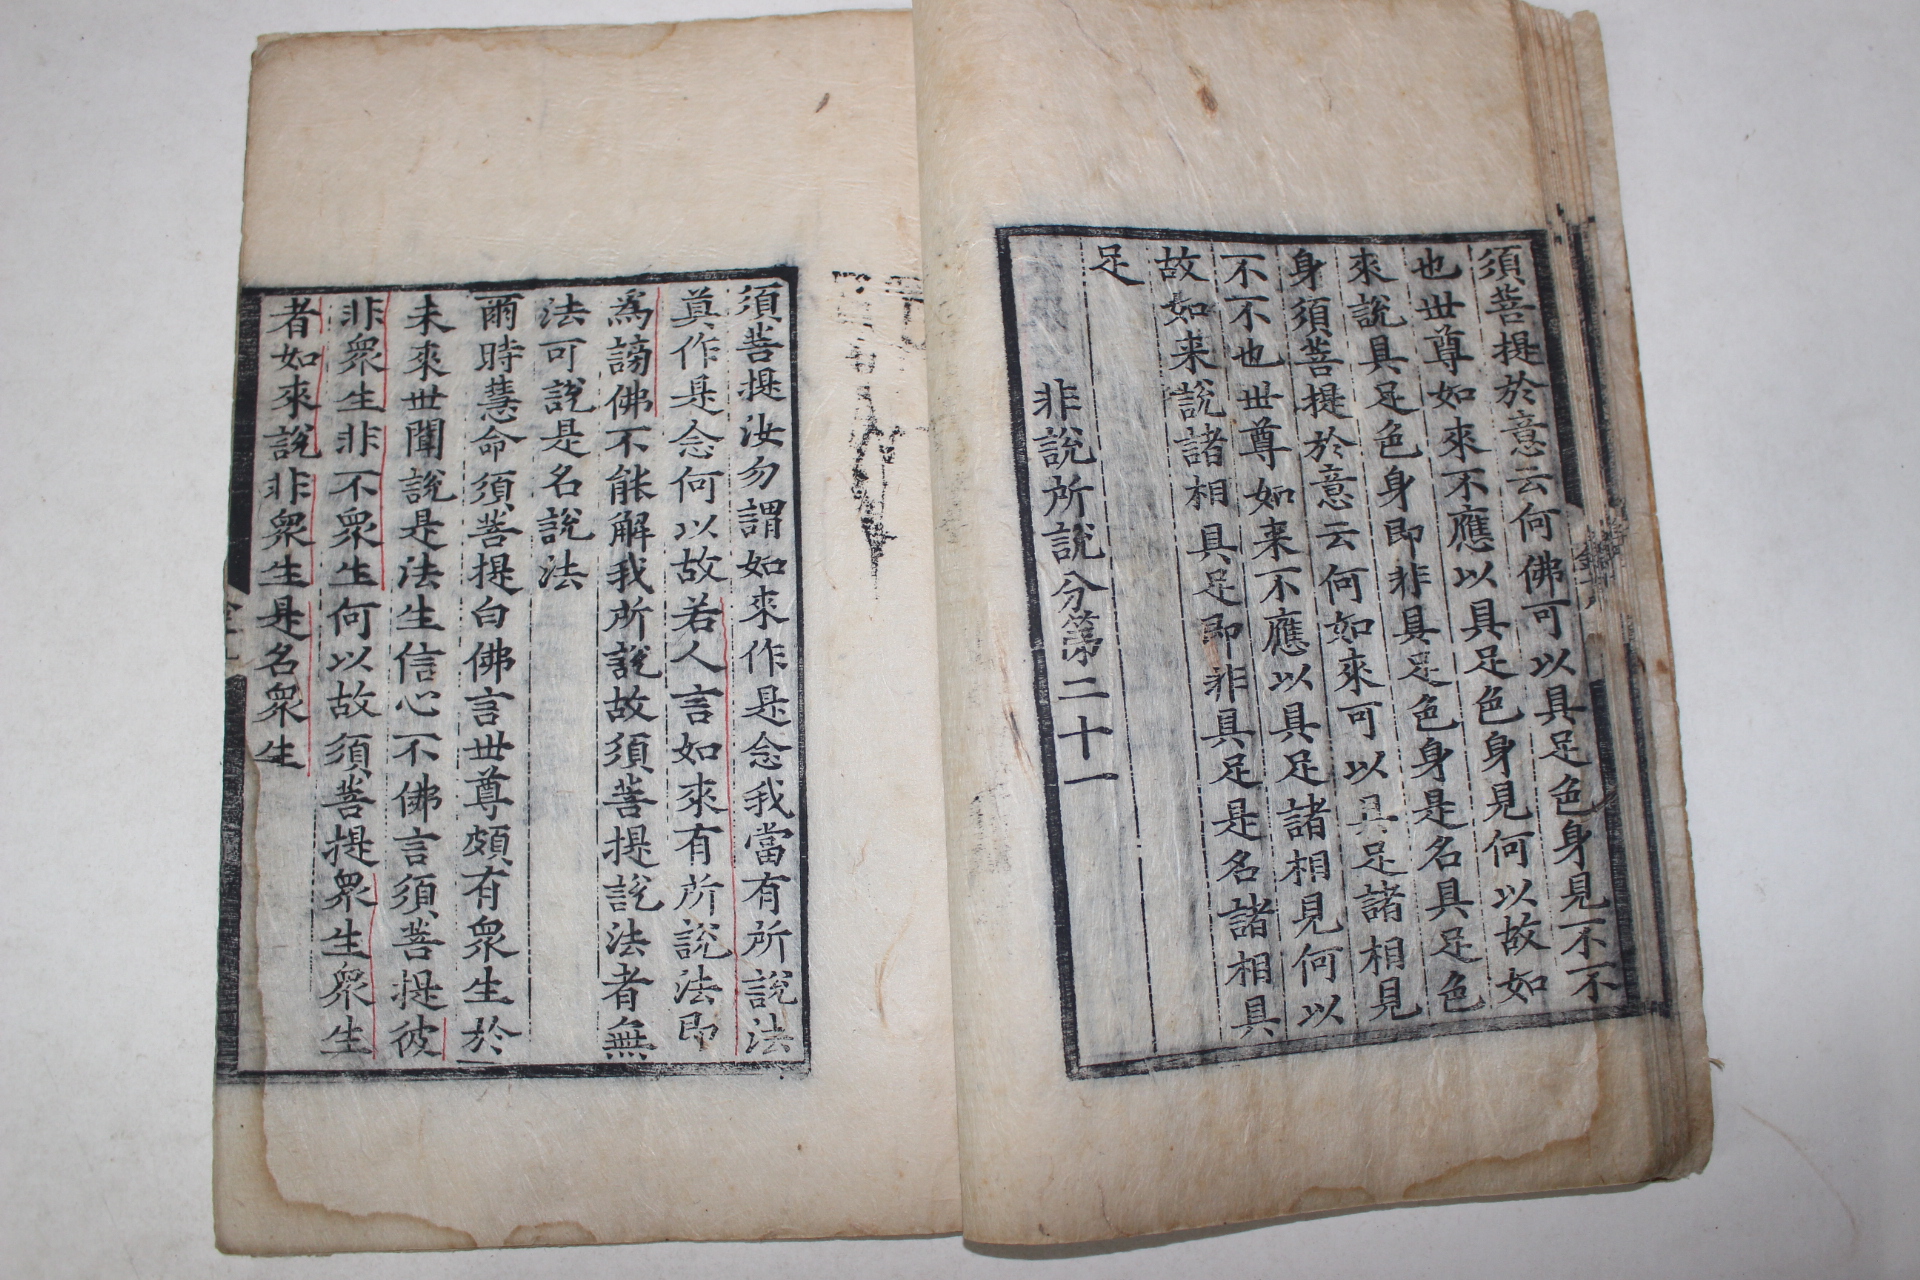 須菩提於意云何佛可以具足色身見不不
也世尊如來不應以具足色身見何以故如
來說具足色身即非具足色身是名具足色
身須菩提於意云何如來可以具足諸相見
不不也世尊如来不應以具足諸相見何以
故如来說諸相具足即非具足是名諸相具
足
非說所說分第二十一
須菩提汝勿謂如來作是念我當有所說法
莫作是念何以故若人言如來有所說法即
爲謗佛不能解我所說故須菩提說法者無
法可說是名說法
爾時慧命須菩提白佛言世尊頗有衆生於
未來世聞說是法生信心不佛言須菩提彼
非衆生非不衆生何以故須菩提衆生衆生
者如來說非衆生是名衆生